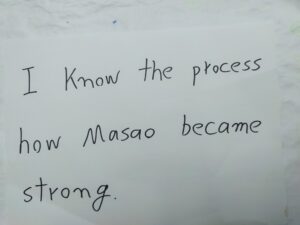 I know the process
how Masao became
strong.